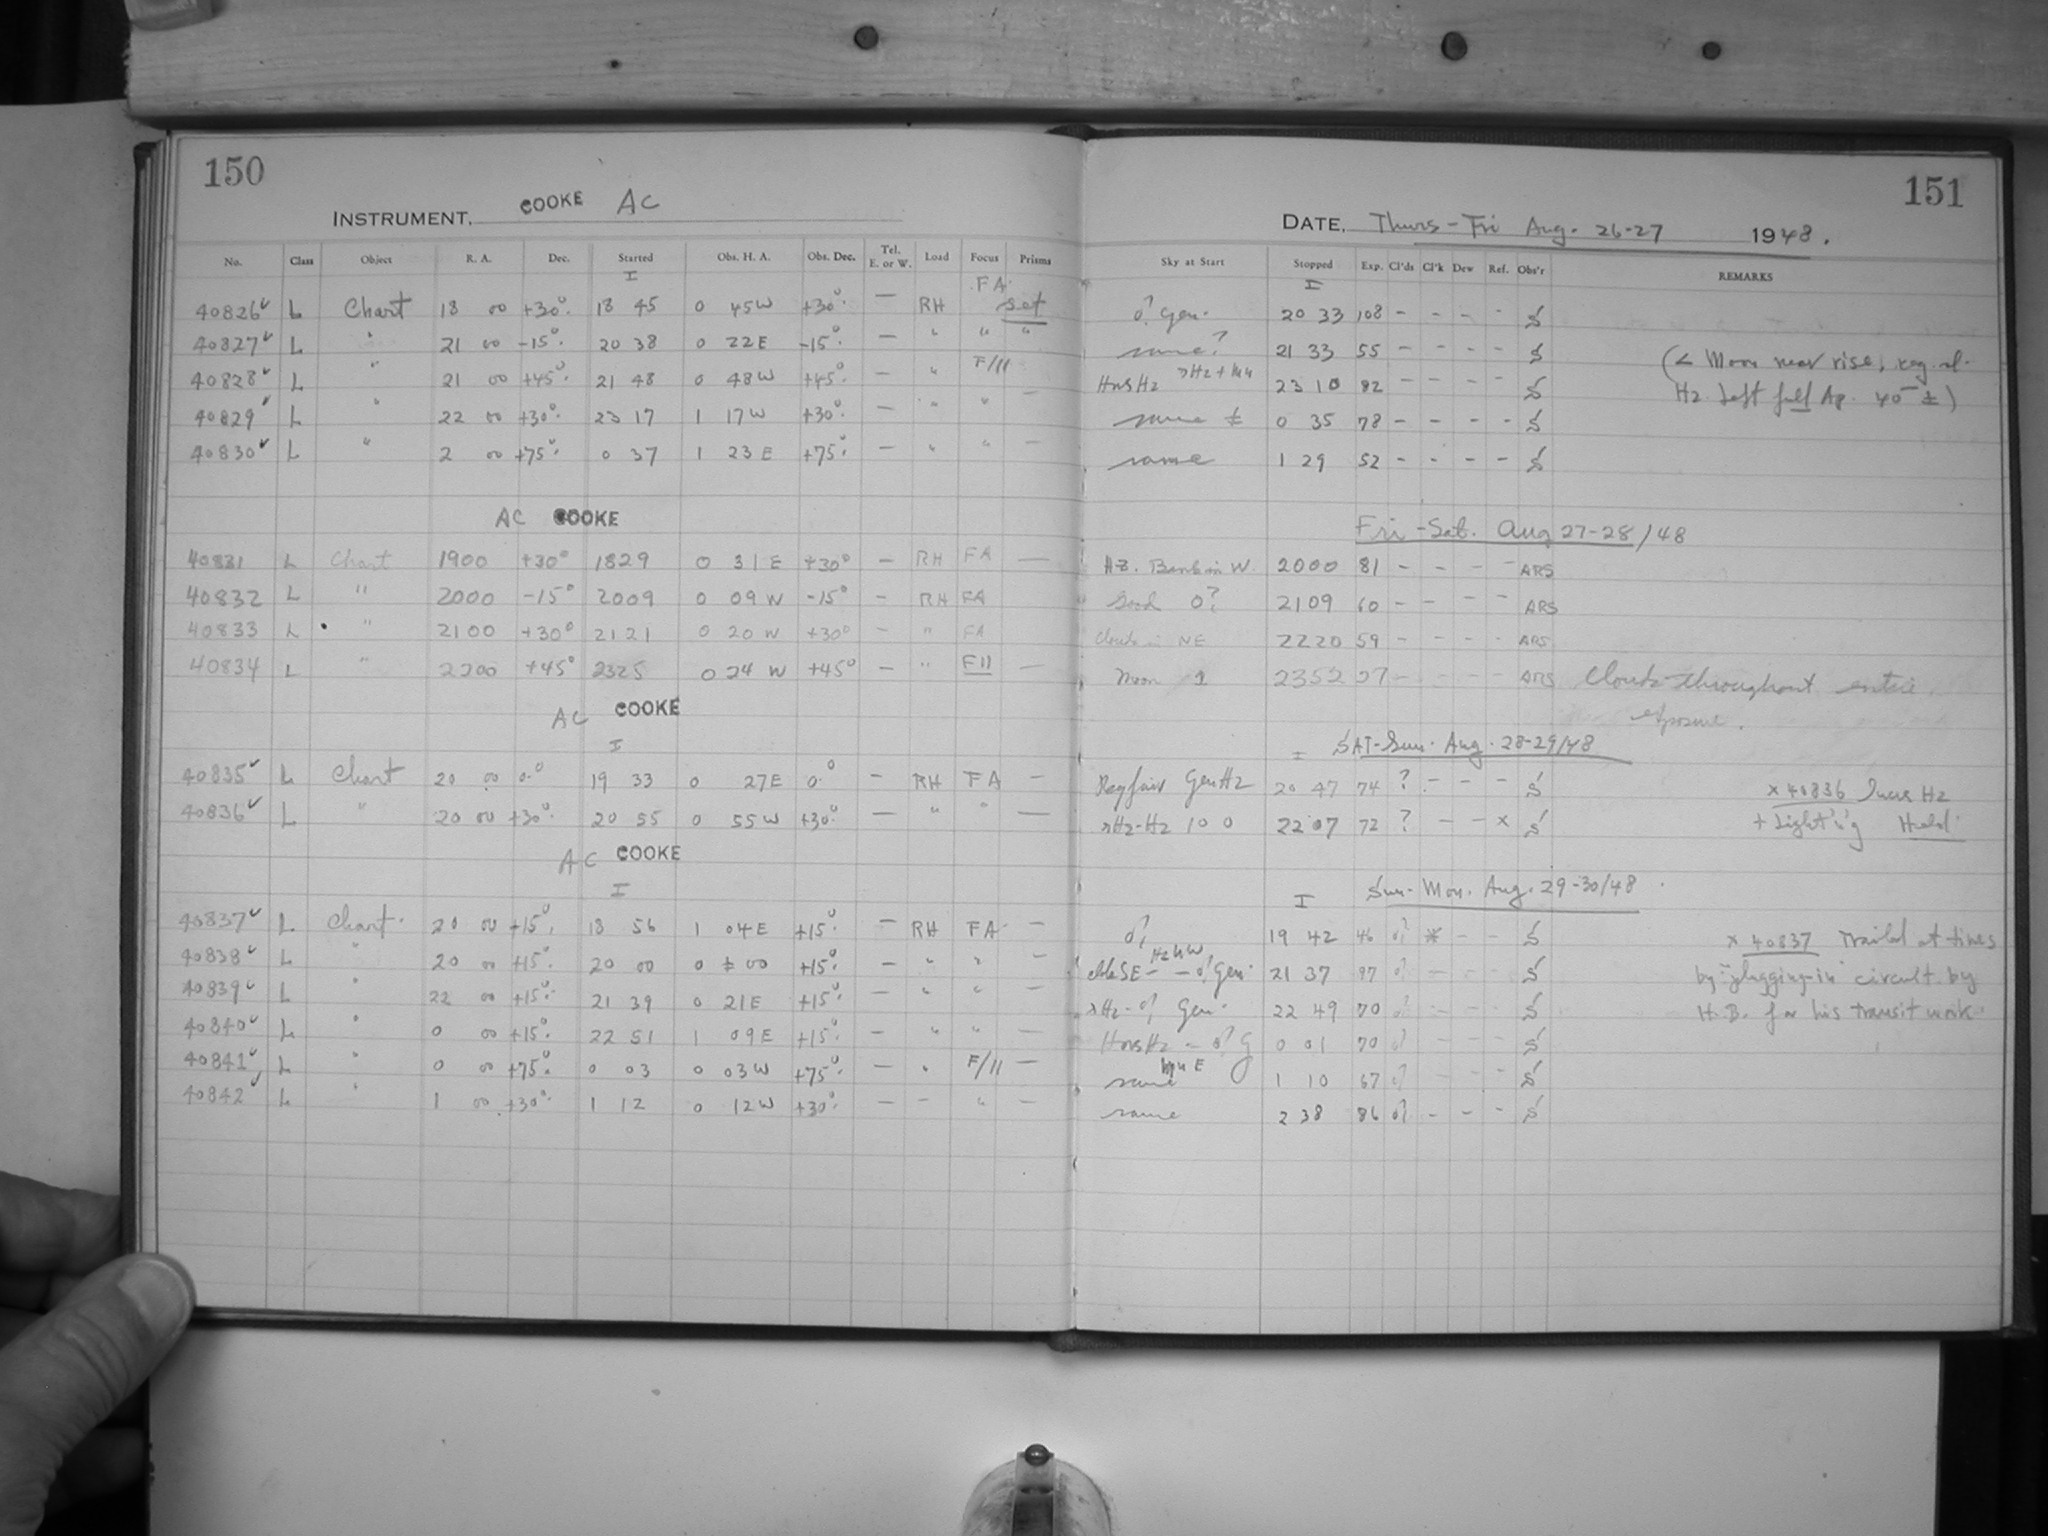 150
COOKE AC
INSTRUMENT,
No. Class Object R. A. Dec. Started Obs. H. A. Obs. Dec. Tel. E. or W. Load Focus Prisms
I FA
40826 L Chart 18 00 +30° 18 45 0 45W +30° — RH set
40827 L " 21 00 -15° 20 38 0 22E -15° — " " "
40828 L " 21 00 +45° 21 48 0 48W +45° — " F/11
40829 L " 22 00 +30° 23 17 1 17W +30° — " " —
40830 L " 2 00 +75° 0 37 1 23E +75° — " " —
AC COOKE
40831 L Chart 1900 +30° 1829 0 31E +30° — RH FA —
40832 L " 2000 -15° 2009 0 09W -15° — RH FA
40833 L " 2100 +30° 2121 0 20W +30° — " FA
40834 L " 2200 +45° 2325 0 24W +45° — " F11 —
AC COOKE
I
40835 L Chart 20 00 0° 19 33 0 27E 0° — RH FA —
40836 L " 20 00 +30° 20 55 0 55W +30° — " " —
AC COOKE
I
40837 L Chart 20 00 +15° 18 56 1 04E +15° — RH FA —
40838 L " 20 00 +15° 20 00 0 ± 00 +15° — " "
40839 L " 22 00 +15° 21 39 0 21E +15° — " "
40840 L " 0 00 +15° 22 51 1 09E +15° — " " —
40841 L " 0 00 +75° 0 03 0 03W +75° — " F/11 —
40842 L " 1 00 +30° 1 12 0 12W +30° — — " —
151
DATE, Thurs-Fri Aug. 26-27 1948.
Sky at Start Stopped Exp. Cl'ds Cl'k Dew Ref. Obs'r REMARKS
I
Gen. 20 33 108 - - - - S
same? 21 33 55 - - - - S (< Moon near rise,
HrsHz 23 10 82 - - - - S Hz. Left full Ap. 40 ±)
same ± 0 35 78 - - - - S
same 1 29 52 - - - - S
Fri-Sat. Aug 27-28/48
Hz. Bank in W. 2000 81 - - - - ARS
Good 0? 2109 60 - - - - ARS
Clouds in NE 2220 59 - - - - ARS
Moon 2352 27 - - - - ARS Clouds throughout entire
exposure.
I SAT-Sun. Aug. 28-29/48
Gen Hz 20 47 74 ? - - - S x 40836 Hz
Hz-Hz 100 22 07 72 ? - - x S + Light'g
Sun-Mon. Aug. 29-30/48
I
19 42 46 * - - S x 40837 trailed at times
HzNW
Gen. 21 37 97 - - - S by "plugging-in" circuit by
Hz- Gen. 22 49 70 - - - S H.B. for his transit work.
HrsHz - G 0 01 70 - - - S
same E 1 10 67 - - - S
same 2 38 86 - - - S